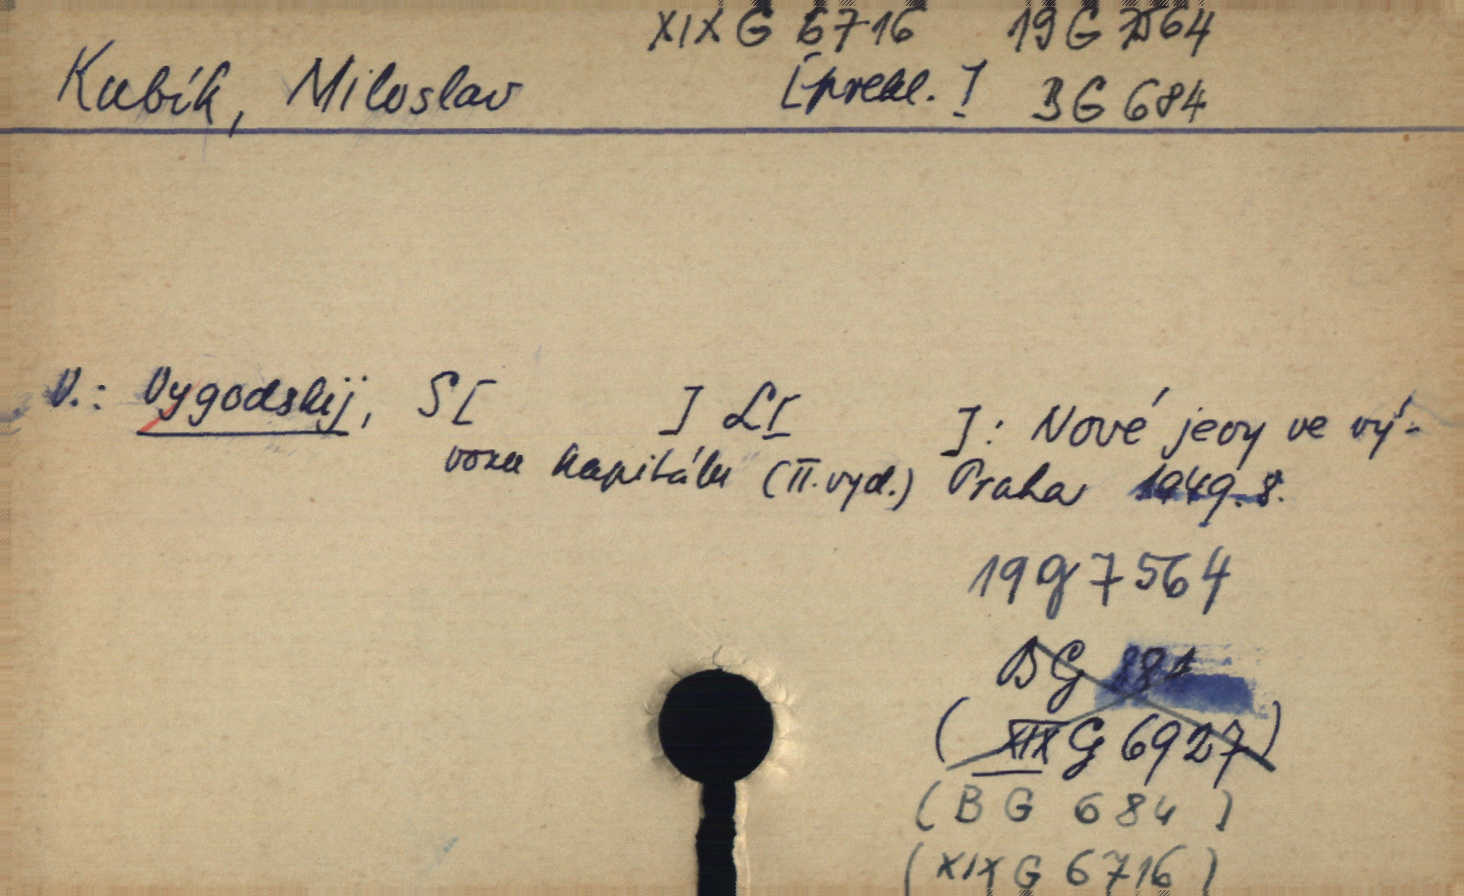 XIX G 6716 19 G 7564
Kubík, Miloslav [překl.] BG 684
V.: Vygodskij, S[ ] L[ ]: Nové jevy ve vý-
vozu kapitálu (II. vyd.) Praha 1949. 8.
19 G 7564
BG
(XIX G 6927)
(BG 684)
(XIX G 6716)